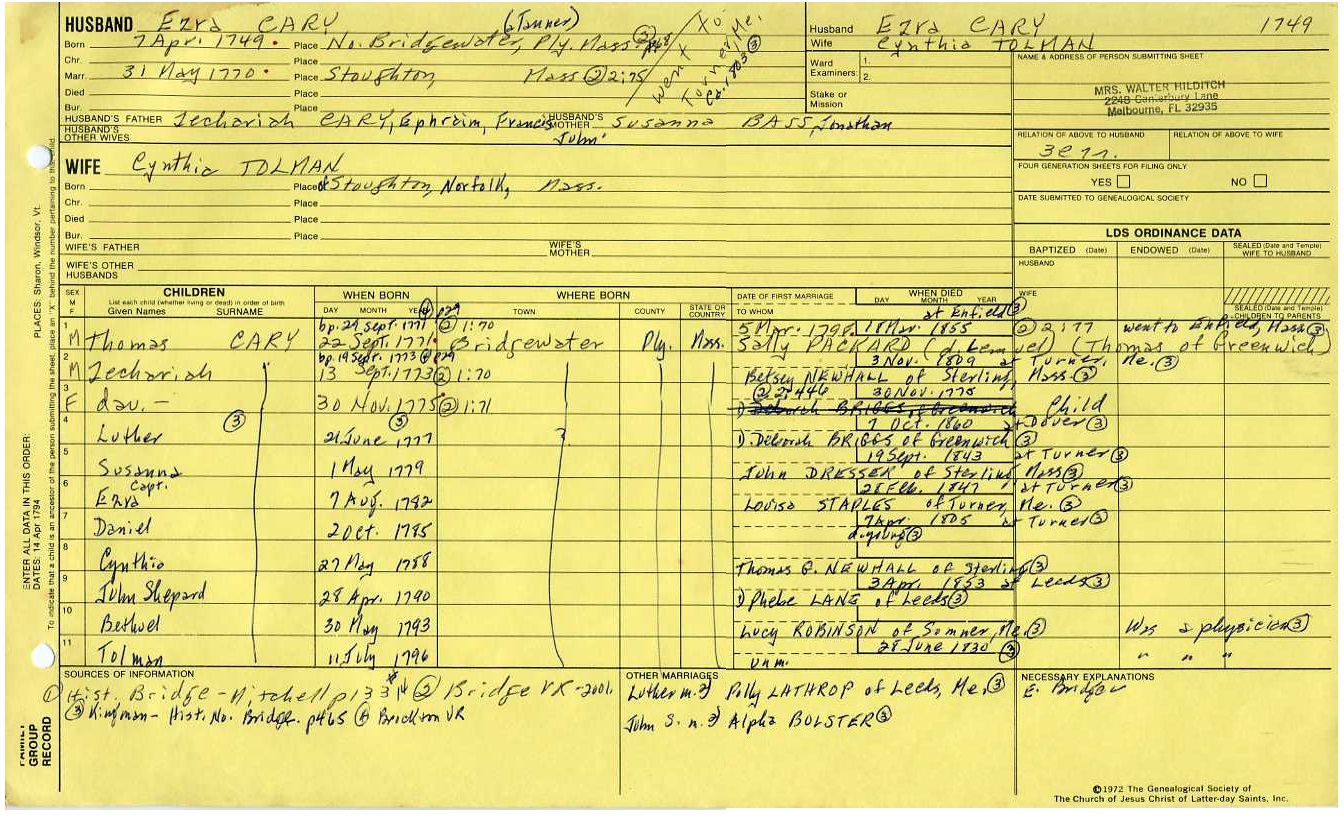 HUSBAND Ezra CARY (Tanner)
Born 7 Apr. 1749 Place No. Bridgewater, Ply. Mass ③ p468
Chr. Place
Marr. 31 May 1770 Place Stoughton, Mass ② 2:75
Died Place
Bur. Place
went to Turner, Me. ca. 1803 ③
HUSBAND'S FATHER Zechariah CARY, Ephraim, Francis, John
HUSBAND'S MOTHER Susanna BASS, Jonathan
HUSBAND'S OTHER WIVES
Husband Ezra CARY 1749
Wife Cynthia TOLMAN
Ward Examiners: 1.
2.
Stake or Mission
NAME & ADDRESS OF PERSON SUBMITTING SHEET
MRS. WALTER HILDITCH
2248 Canterbury Lane
Melbourne, FL 32935
RELATION OF ABOVE TO HUSBAND RELATION OF ABOVE TO WIFE
FOUR GENERATION SHEETS FOR FILING ONLY
YES NO
DATE SUBMITTED TO GENEALOGICAL SOCIETY
WIFE Cynthia TOLMAN
Born Place of Stoughton, Norfolk, Mass.
Chr. Place
Died Place
Bur. Place
WIFE'S FATHER WIFE'S MOTHER
WIFE'S OTHER HUSBANDS
LDS ORDINANCE DATA
BAPTIZED (Date) ENDOWED (Date) SEALED (Date and Temple) WIFE TO HUSBAND
HUSBAND
WIFE
SEALED (Date and Temple) CHILDREN TO PARENTS
SEX M F CHILDREN List each child (whether living or dead) in order of birth Given Names SURNAME
WHEN BORN DAY MONTH YEAR
WHERE BORN TOWN COUNTY STATE OR COUNTRY
DATE OF FIRST MARRIAGE TO WHOM
WHEN DIED DAY MONTH YEAR
1 M Thomas CARY bp. 29 Sept. 1771 ④ p29 22 Sept. 1771 ② 1:70 Bridgewater Ply. Mass. 5 Mar. 1798 18 Mar. 1855 at Enfield ③ ② 2:77 went to Enfield, Mass ③
Sally PACKARD (d. Lemuel) (Thomas of Greenwich)
2 M Zechariah bp. 19 Sept. 1773 ④ p29 13 Sept. 1773 ② 1:70 3 Nov. 1809 at Turner, Me. ③
Betsey NEWHALL of Sterling, Mass. ③
3 F dau. — 30 Nov. 1775 ② 1:71 ② 2:446 30 Nov. 1775
D Deborah BRIGGS, of Greenwich Child
4 Luther ③ 21 June 1777 ③ 7 Oct. 1860 at Dover ③
D. Deborah BRIGGS of Greenwich ③
5 Susanna 1 May 1779 19 Sept. 1843 at Turner ③
John DRESSER of Sterling Mass ③
6 Capt. Ezra 7 Aug. 1782 28 Feb. 1847 at Turner ③
Louisa STAPLES of Turner, Me. ③
7 Daniel 2 Oct. 1785 7 Apr. 1805 at Turner ③
d. young ③
8 Cynthia 27 May 1788
Thomas G. NEWHALL of Sterling ③
9 John Shepard 28 Apr. 1790 3 Apr. 1853 at Leeds ③
D Phebe LANE of Leeds ③
10 Bethuel 30 May 1793
Lucy ROBINSON of Sumner, Me. ③ Was a physician ③
11 Tolman 11 July 1796 28 June 1830 ③
unm. " " "
SOURCES OF INFORMATION
① Hist. Bridge - Mitchell p133 ② Bridge VR - 2001
③ Kingman - Hist. No. Bridge. p465 ④ Brockton VR
OTHER MARRIAGES
Luther m. 2) Polly LATHROP of Leeds, Me. ③
John S. m. 2) Alpha BOLSTER ③
NECESSARY EXPLANATIONS
E. Bridgew
©1972 The Genealogical Society of
The Church of Jesus Christ of Latter-day Saints, Inc.
PLACES: Sharon, Windsor, Vt.
ENTER ALL DATA IN THIS ORDER:
DATES: 14 Apr 1794
To indicate that a child is an ancestor of the person submitting the sheet, place an "X" behind the number pertaining to that child.
FAMILY GROUP RECORD